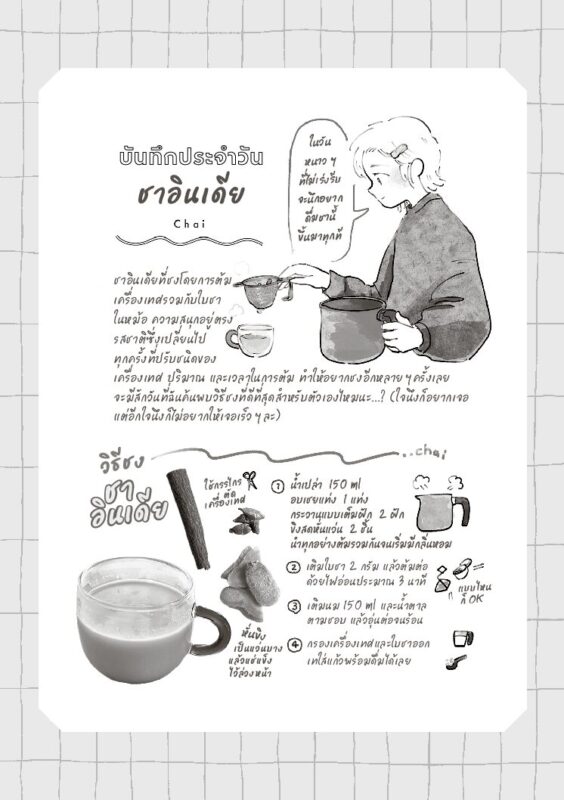 บันทึกประจำวัน
ชาอินเดีย
Chai
ในวัน
หนาว ๆ
ที่ไม่เร่งรีบ
จะนึกอยาก
ดื่มชานี้
ขึ้นมาทุกที
ชาอินเดียที่ชงโดยการต้ม
เครื่องเทศรวมกับใบชา
ในหม้อ ความสนุกอยู่ตรง
รสชาติซึ่งเปลี่ยนไป
ทุกครั้งที่ปรับชนิดของ
เครื่องเทศ ปริมาณ และเวลาในการต้ม ทำให้อยากชงอีกหลาย ๆ ครั้งเลย
จะมีสักวันที่ฉันค้นพบวิธีชงที่ดีที่สุดสำหรับตัวเองไหมนะ...? (ใจนึงก็อยากเจอ
แต่อีกใจนึงก็ไม่อยากให้เจอเร็ว ๆ ละ)
วิธีชง
ชา
อินเดีย
..chai
ใช้กรรไกร
ตัด
เครื่องเทศ
① น้ำเปล่า 150 ml
อบเชยแท่ง 1 แท่ง
กระวานแบบเต็มฝัก 2 ฝัก
ขิงสดหั่นแว่น 2 ชิ้น
นำทุกอย่างต้มรวมกันจนเริ่มมีกลิ่นหอม
② เติมใบชา 2 กรัม แล้วต้มต่อ
ด้วยไฟอ่อนประมาณ 3 นาที
แบบไหน
ก็ OK
③ เติมนม 150 ml และน้ำตาล
ตามชอบ แล้วอุ่นต่อจนร้อน
④ กรองเครื่องเทศและใบชาออก
เทใส่แก้วพร้อมดื่มได้เลย
หั่นขิง
เป็นแว่นบาง
แล้วแช่แข็ง
ไว้ล่วงหน้า